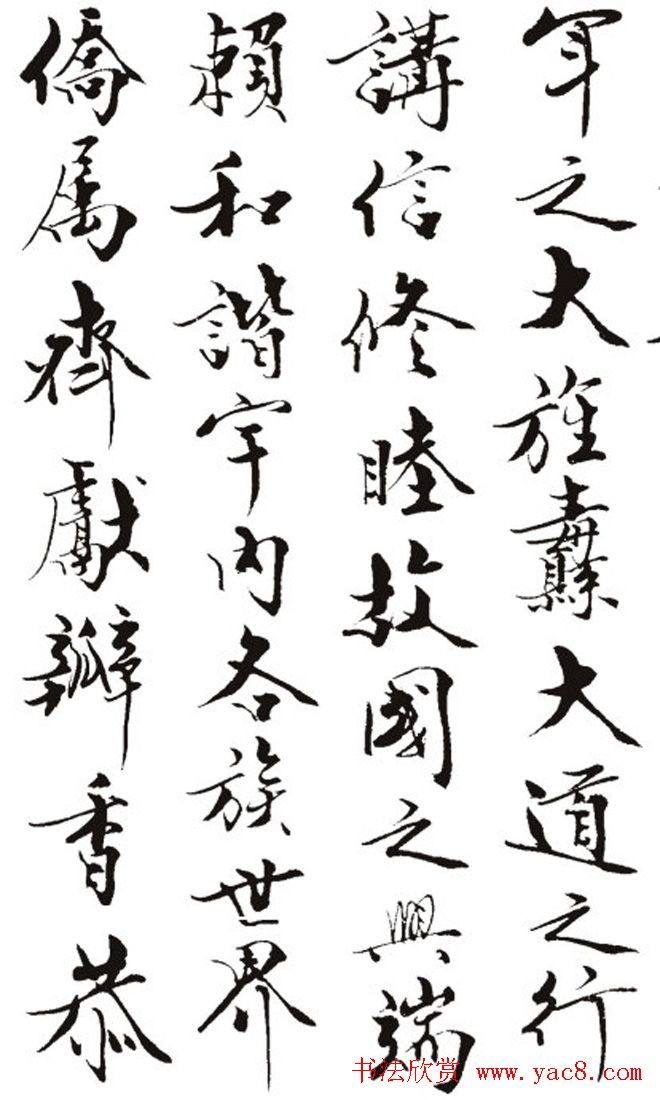 年之大旌纛大道之行
講信修睦故國之興端
賴和諧宇内各族世界
僑属齊獻瓣香恭
书法欣赏 www.yac8.com